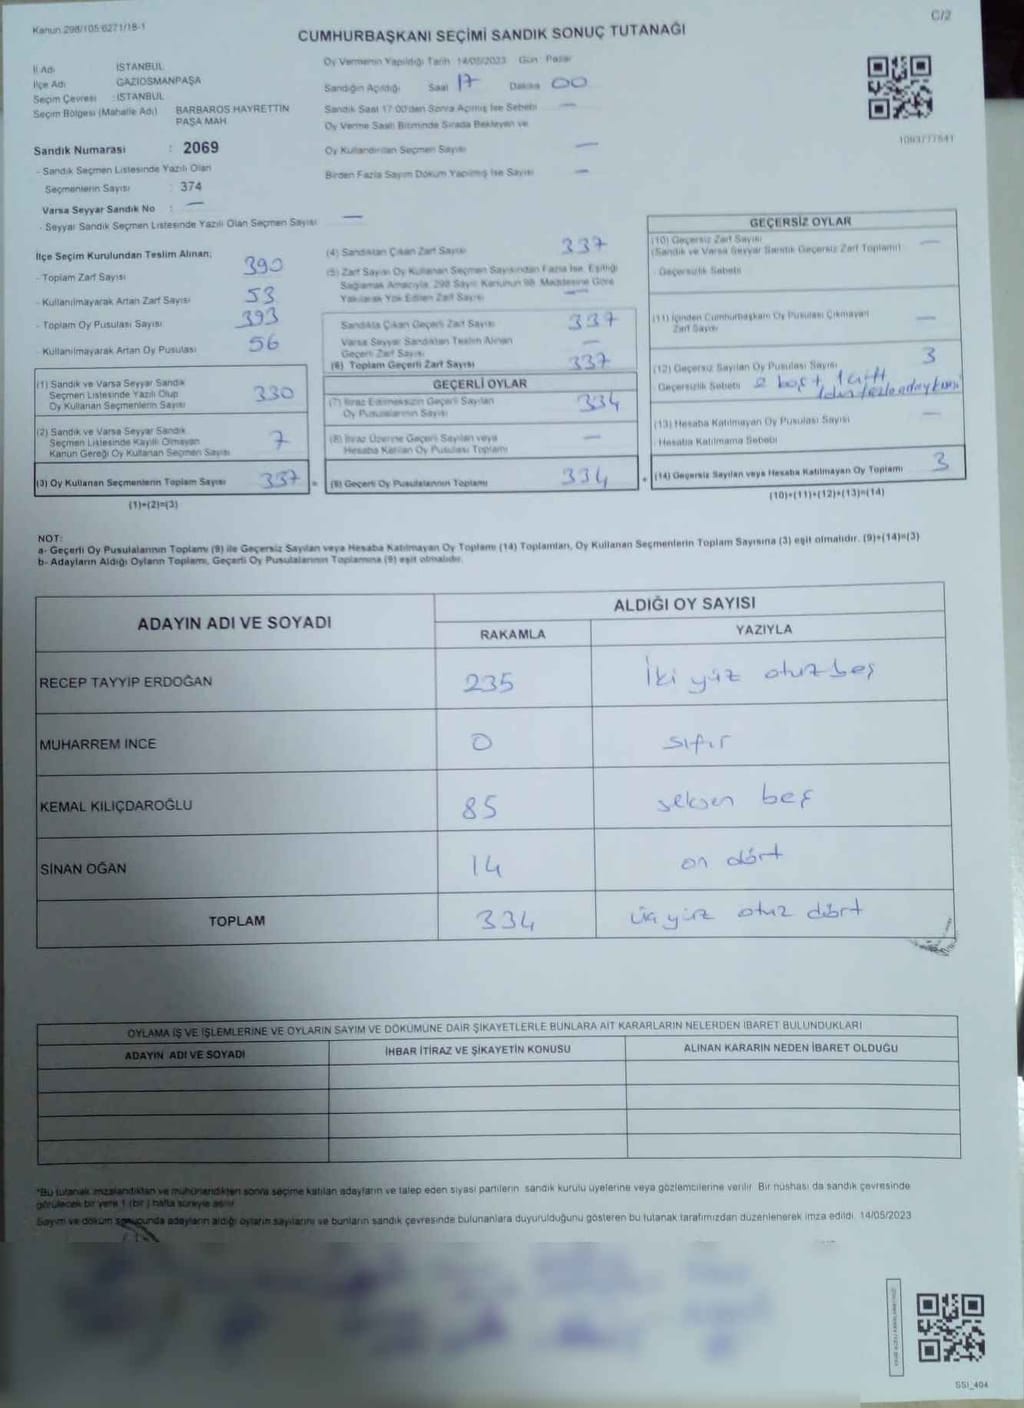 Kanun 298/105 6271/18-1
C/2
CUMHURBAŞKANI SEÇİMİ SANDIK SONUÇ TUTANAĞI
İl Adı İSTANBUL
İlçe Adı GAZİOSMANPAŞA
Seçim Çevresi : İSTANBUL
Seçim Bölgesi (Mahalle Adı) BARBAROS HAYRETTİN PAŞA MAH
Sandık Numarası : 2069
- Sandık Seçmen Listesinde Yazılı Olan
Seçmenlerin Sayısı : 374
Varsa Seyyar Sandık No : —
- Seyyar Sandık Seçmen Listesinde Yazılı Olan Seçmen Sayısı —
Oy Vermenin Yapıldığı Tarih 14/05/2023 Gün : Pazar
Sandığın Açıldığı Saat 17 Dakika 00
Sandık Saat 17:00'den Sonra Açılmış İse Sebebi —
Oy Verme Saati Bitiminde Sırada Bekleyen ve
Oy Kullandırılan Seçmen Sayısı —
Birden Fazla Sayım Döküm Yapılmış İse Sayısı —
1093777541
İlçe Seçim Kurulundan Teslim Alınan;
- Toplam Zarf Sayısı 390
- Kullanılmayarak Artan Zarf Sayısı 53
- Toplam Oy Pusulası Sayısı 393
- Kullanılmayarak Artan Oy Pusulası 56
(1) Sandık ve Varsa Seyyar Sandık
Seçmen Listesinde Yazılı Olup
Oy Kullanan Seçmenlerin Sayısı 330
(2) Sandık ve Varsa Seyyar Sandık
Seçmen Listesinde Kayıtlı Olmayan
Kanun Gereği Oy Kullanan Seçmen Sayısı 7
(3) Oy Kullanan Seçmenlerin Toplam Sayısı 337
(1)+(2)=(3)
(4) Sandıktan Çıkan Zarf Sayısı 337
(5) Zarf Sayısı Oy Kullanan Seçmen Sayısından Fazla İse, Eşitliği
Sağlamak Amacıyla, 298 Sayılı Kanunun 98. Maddesine Göre
Yakılarak Yok Edilen Zarf Sayısı —
Sandıkta Çıkan Geçerli Zarf Sayısı 337
Varsa Seyyar Sandıktan Teslim Alınan
Geçerli Zarf Sayısı —
(6) Toplam Geçerli Zarf Sayısı 337
GEÇERLİ OYLAR
(7) İtiraz Edilmeksizin Geçerli Sayılan
Oy Pusulalarının Sayısı 334
(8) İtiraz Üzerine Geçerli Sayılan veya
Hesaba Katılan Oy Pusulası Toplamı —
(9) Geçerli Oy Pusulalarının Toplamı 334
GEÇERSİZ OYLAR
(10) Geçersiz Zarf Sayısı
(Sandık ve Varsa Seyyar Sandık Geçersiz Zarf Toplamı) —
- Geçersizlik Sebebi
(11) İçinden Cumhurbaşkanı Oy Pusulası Çıkmayan
Zarf Sayısı —
(12) Geçersiz Sayılan Oy Pusulası Sayısı 3
- Geçersizlik Sebebi 2 boş + 1
(13) Hesaba Katılmayan Oy Pusulası Sayısı —
- Hesaba Katılmama Sebebi
(14) Geçersiz Sayılan veya Hesaba Katılmayan Oy Toplamı 3
(10)+(11)+(12)+(13)=(14)
NOT:
a- Geçerli Oy Pusulalarının Toplamı (9) ile Geçersiz Sayılan veya Hesaba Katılmayan Oy Toplamı (14) Toplamları, Oy Kullanan Seçmenlerin Toplam Sayısına (3) eşit olmalıdır. (9)+(14)=(3)
b- Adayların Aldığı Oyların Toplamı, Geçerli Oy Pusulalarının Toplamına (9) eşit olmalıdır.
ADAYIN ADI VE SOYADI ALDIĞI OY SAYISI
RAKAMLA YAZIYLA
RECEP TAYYİP ERDOĞAN 235 İki yüz otuz beş
MUHARREM İNCE 0 sıfır
KEMAL KILIÇDAROĞLU 85 seksen beş
SİNAN OĞAN 14 on dört
TOPLAM 334 üç yüz otuz dört
OYLAMA İŞ VE İŞLEMLERİNE VE OYLARIN SAYIM VE DÖKÜMÜNE DAİR ŞİKAYETLERLE BUNLARA AİT KARARLARIN NELERDEN İBARET BULUNDUKLARI
ADAYIN ADI VE SOYADI İHBAR İTİRAZ VE ŞİKAYETİN KONUSU ALINAN KARARIN NEDEN İBARET OLDUĞU
*Bu tutanak imzalandıktan ve mühürlendikten sonra seçime katılan adayların ve talep eden siyasi partilerin sandık kurulu üyelerine veya gözlemcilerine verilir. Bir nüshası da sandık çevresinde
görülecek bir yere 1 (bir) hafta süreyle asılır.
Sayım ve döküm sonucunda adayların aldığı oyların sayılarını ve bunların sandık çevresinde bulunanlara duyurulduğunu gösteren bu tutanak tarafımızdan düzenlenerek imza edildi. 14/05/2023
SSI_404